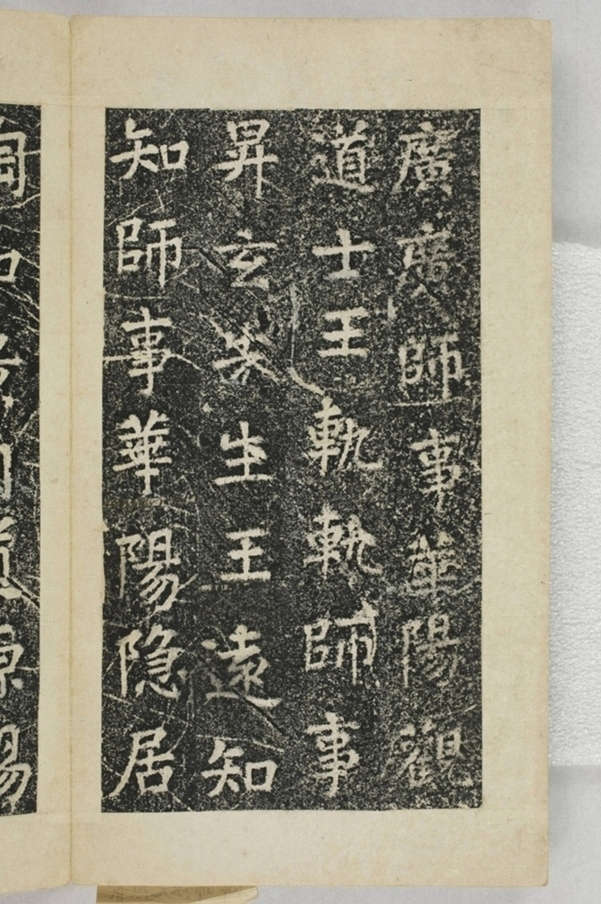 廣廣師事華陽觀
道士王軌軌師事
昇玄先生王遠知
知師事華陽隐居